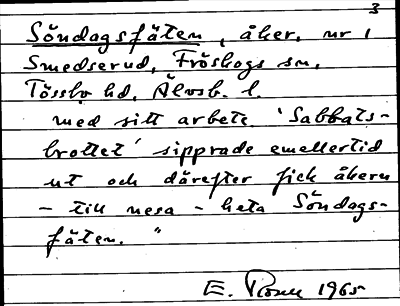 3
Söndagsfäten, åker, nr 1
Smedserud, Fröskogs sn,
Tössbo hd, Älvsb. l.
med sitt arbete. 'Sabbats-
brottet' sipprade emellertid
ut och därefter fick åkern
- till nesa - heta Söndags-
fäten. "
E. 1965